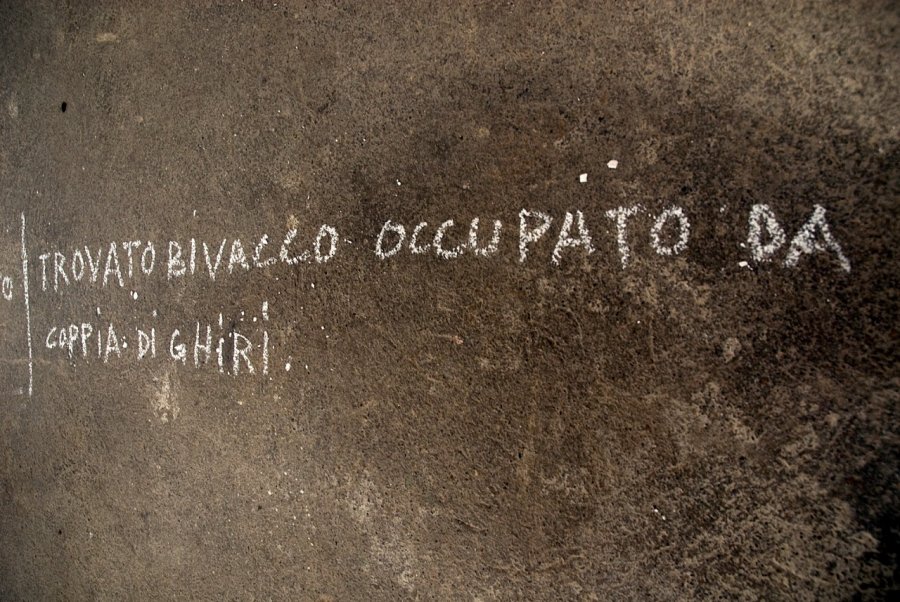 TROVATO BIVACCO OCCUPATO DA
COPPIA DI GHIRI